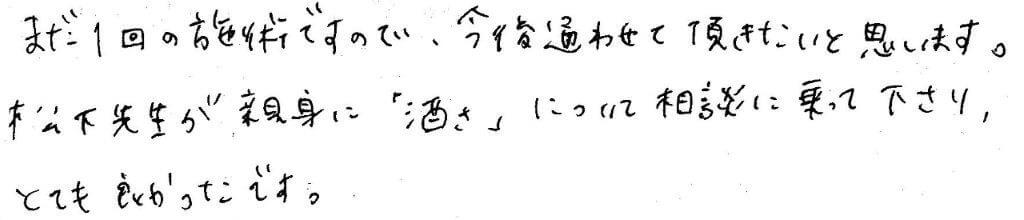 まだ1回の施術ですので、今後通わせて頂きたいと思います。
松下先生が親身に「酒さ」について相談に乗って下さり、
とても良かったです。